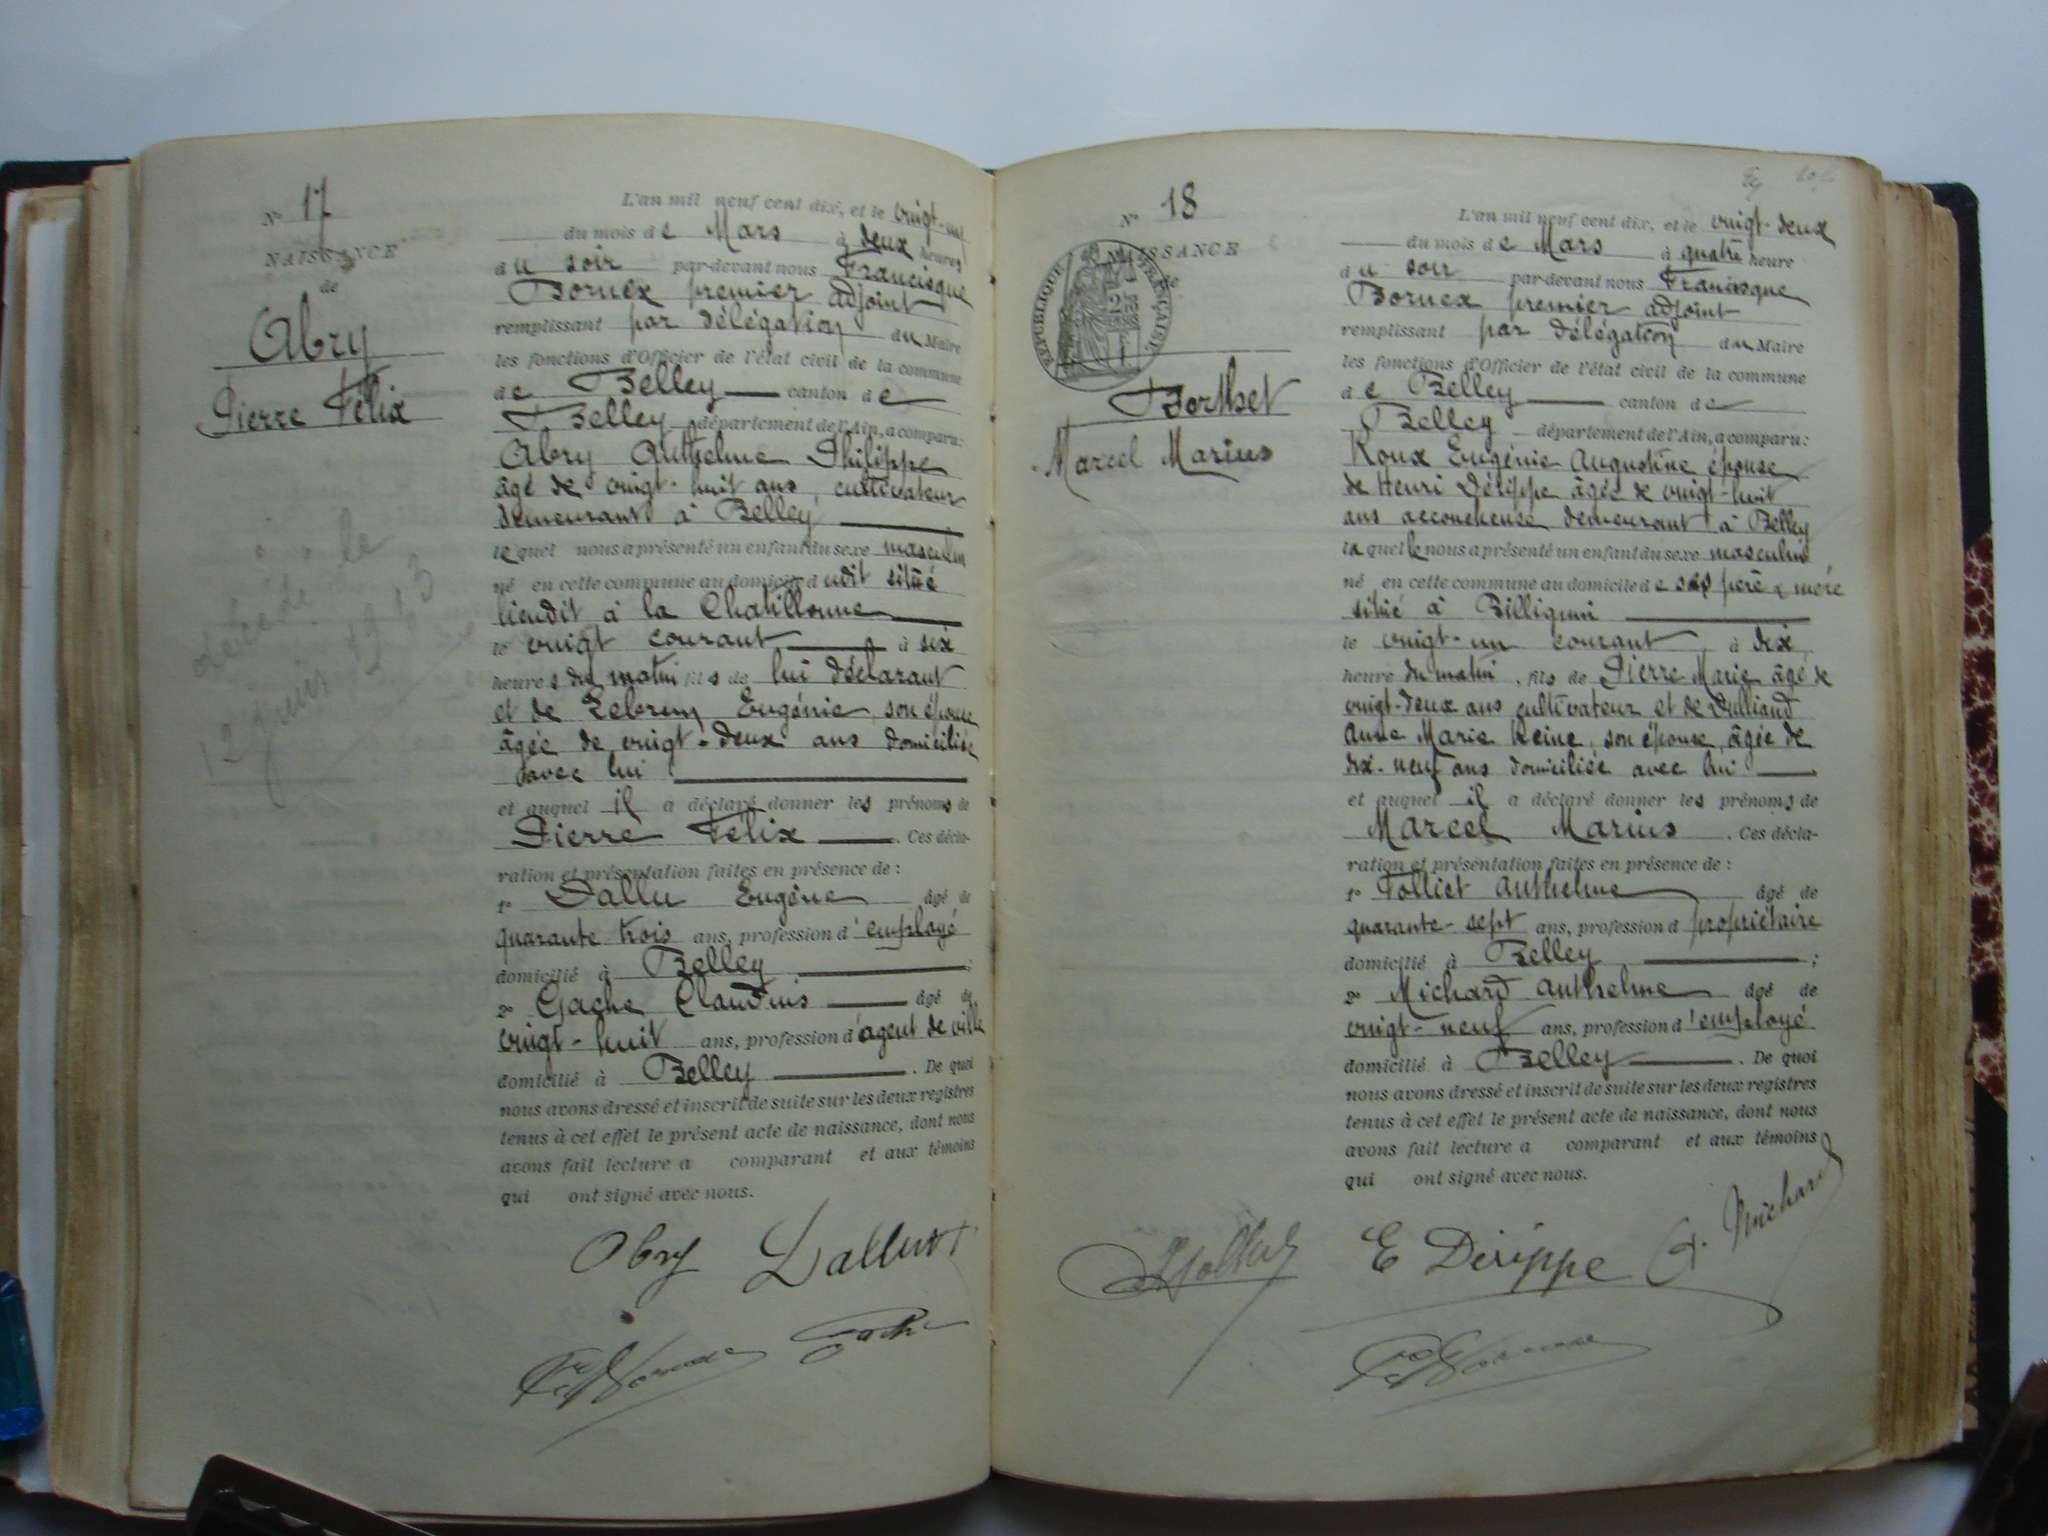 N° 17
NAISSANCE
de
Abry
Pierre Félix
décédé le
12 juin 1913
L'an mil neuf cent dix, et le vingt-un
du mois de Mars à deux heures
du soir par-devant nous Francisque
Bornex premier adjoint
remplissant par délégation du Maire
les fonctions d'Officier de l'état civil de la commune
de Belley canton de
Belley département de l'Ain, a comparu:
Abry Anthelme Philippe
âgé de vingt-huit ans, cultivateur
demeurant à Belley
lequel nous a présenté un enfant du sexe masculin
né en cette commune au domicile dudit situé
lieudit à la Chatillonne
le vingt courant à six
heures du matin fils de lui déclarant
et de Lebrun Eugénie, son épouse
âgée de vingt-deux ans domiciliée
avec lui
et auquel il a déclaré donner les prénoms de
Pierre Félix. Ces décla-
ration et présentation faites en présence de :
1° Dallu Eugène âgé de
quarante trois ans, profession d'employé
domicilié à Belley ;
2° Gache Claudius âgé de
vingt-huit ans, profession d'agent de ville
domicilié à Belley. De quoi
nous avons dressé et inscrit de suite sur les deux registres
tenus à cet effet le présent acte de naissance, dont nous
avons fait lecture a comparant et aux témoins
qui ont signé avec nous.
Abry Dallu
Gache
N° 18
NAISSANCE
de
RÉPUBLIQUE FRANÇAISE
Borthet
Marcel Marius
L'an mil neuf cent dix, et le vingt-deux
du mois de Mars à quatre heure
du soir par-devant nous Francisque
Bornex premier adjoint
remplissant par délégation du Maire
les fonctions d'Officier de l'état civil de la commune
de Belley canton de
Belley département de l'Ain, a comparu:
Roux Eugénie Augustine épouse
de Henri Dérippe âgée de vingt-huit
ans accoucheuse demeurant à Belley
laquelle nous a présenté un enfant du sexe masculin
né en cette commune au domicile de ses père & mère
situé à Billignin
le vingt-un courant, à dix
heure du matin, fils de Pierre Marie âgé de
vingt-deux ans cultivateur et de Dulliand
Anne Marie Reine, son épouse, âgée de
dix-neuf ans domiciliée avec lui
et auquel il a déclaré donner les prénoms de
Marcel Marius. Ces décla-
ration et présentation faites en présence de :
1° Tolliet Anthelme âgé de
quarante-sept ans, profession d propriétaire
domicilié à Belley ;
2° Michard Anthelme âgé de
vingt-neuf ans, profession d'employé
domicilié à Belley. De quoi
nous avons dressé et inscrit de suite sur les deux registres
tenus à cet effet le présent acte de naissance, dont nous
avons fait lecture a comparant et aux témoins
qui ont signé avec nous.
E Dérippe A. Michard